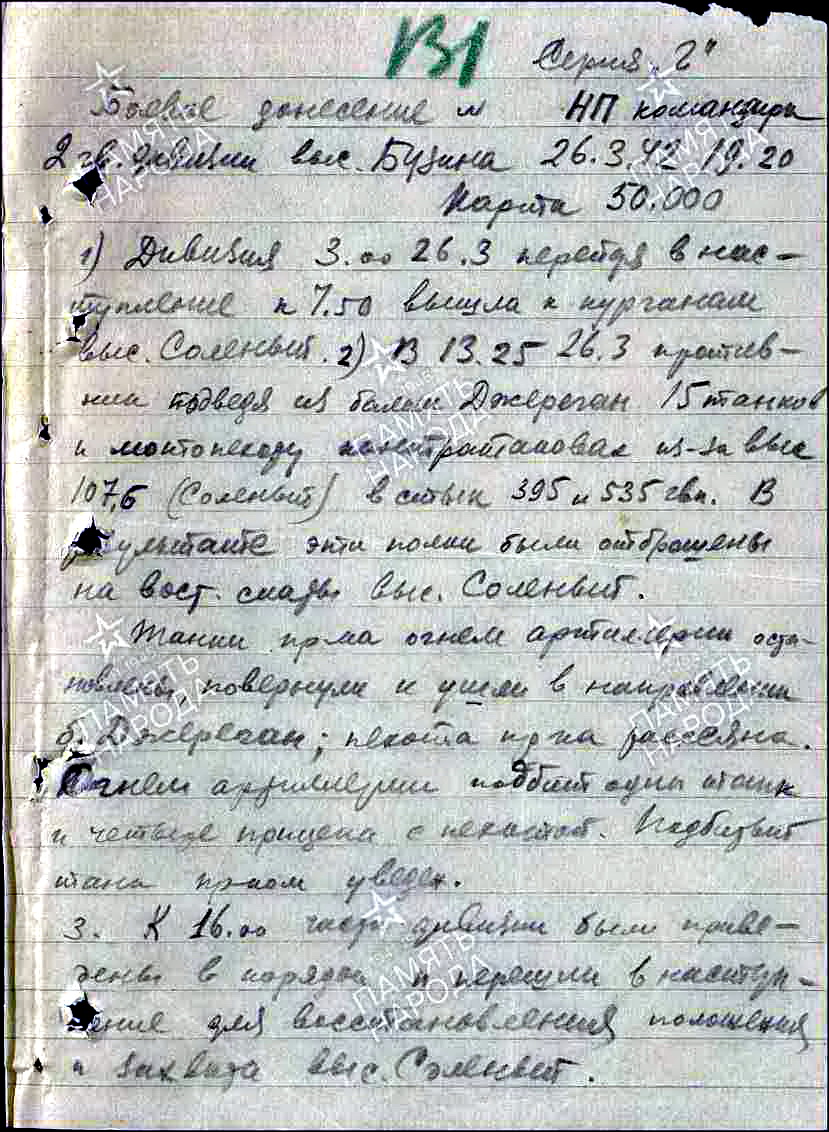 В1
Серия "Г"
Боевое донесение № НП командира
2 гв. дивизии выс. Бузина 26.3.42 19.20
Карта 50.000
1) Дивизия 3.00 26.3 перейдя в нас-
тупление к 7.50 вышла к курганам
выс. Соленый. 2) В 13.25 26.3 против-
ник подведя из балки Джереган 15 танков
и мотопеходу контратаковал из-за выс
107,6 (Соленый) в стык 395 и 535 гвп. В
результате эти полки были отброшены
на вост. скаты выс. Соленый.
Танки пр-ка огнем артиллерии оста-
новлены повернули и ушли в направлении
б. Джереган; пехота пр-ка рассеяна.
Огнем артиллерии подбит один танк
и четыре прицепа с пехотой. Подбитый
танк пр-ком уведен.
3. К 16.00 части дивизии были приве-
дены в порядок и перешли в наступ-
ление для восстановления положения
и захвата выс. Соленый.
ПАМЯТЬ НАРОДА
ПАМЯТЬ НАРОДА
ПАМЯТЬ НАРОДА
ПАМЯТЬ НАРОДА
ПАМЯТЬ НАРОДА
ПАМЯТЬ НАРОДА